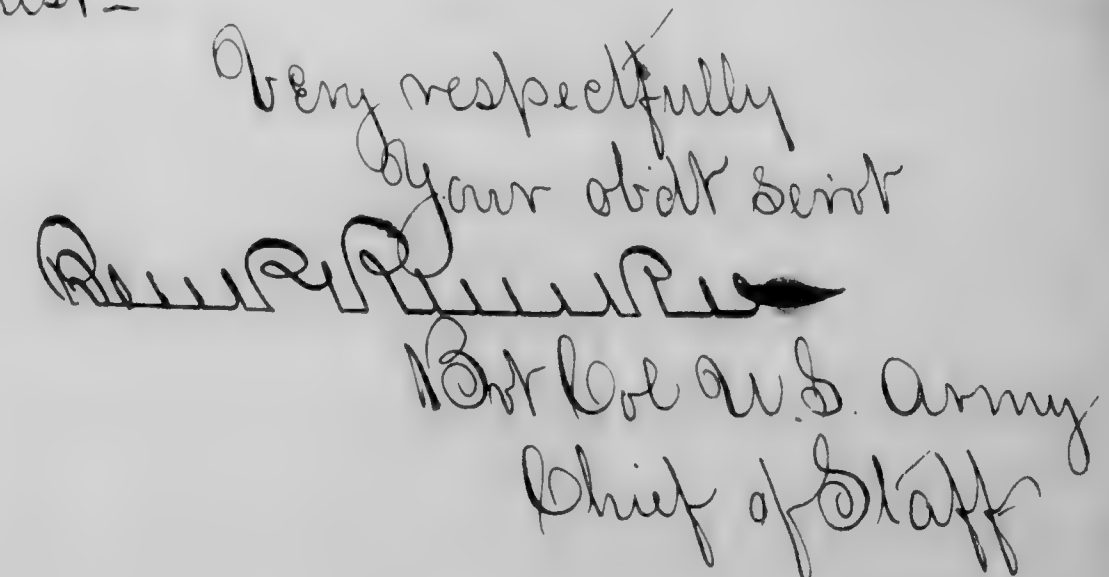 Very respectfully
Your obdt servt
Bvt Col U.S. Army
Chief of Staff